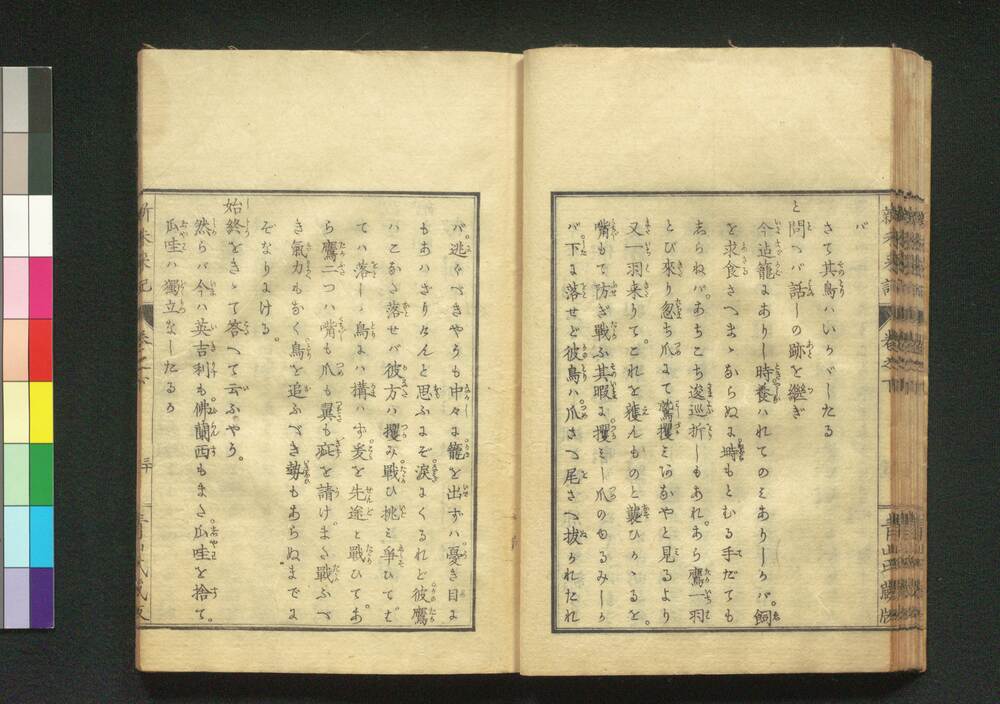 バ
さて其鳥ハいかゞしたる
と問へバ話しの跡を継ぎ
今迠籠にありし時養ハれてのミありしかバ。飼
を求食さへまゝならぬに。時もとむる手だても
しらねバ。あちこち逡巡折しもあれ。あら鷹一羽
とび來り忽ち爪にて鷲攫ミあなやと見るより
又一羽来りて。これを獲んものと襲ひかゝるを。
嘴もて防ぎ戦ふ其暇に。攫ミし爪のゆるみしか
バ下に落せど彼鳥ハ。爪さへ尾さへ拔かれたれ
バ。逃べきやうも中々に。籠を出ずハ憂き目に
もあハざりけんと思ふにぞ。涙にくるれど。彼鷹
ハこなさ落せバ彼方ハ攫み。戦ひ挑ミ爭ひてど
てハ落し。鳥にハ搆ハず爰を先途と戦ひてあ
ら鷹二つハ嘴も爪も翼も疵を請け。また戦ふべ
き氣力もなく鳥を追ふべき勢もあらぬまでに
ぞなりにける。
始終をきゝて答へて云ふやう。
然らバ今ハ英吉利も。佛蘭西もまた瓜哇を捨て。
瓜哇ハ獨立なしたるか
新未来記
巻之下
三十
青山氏蔵版